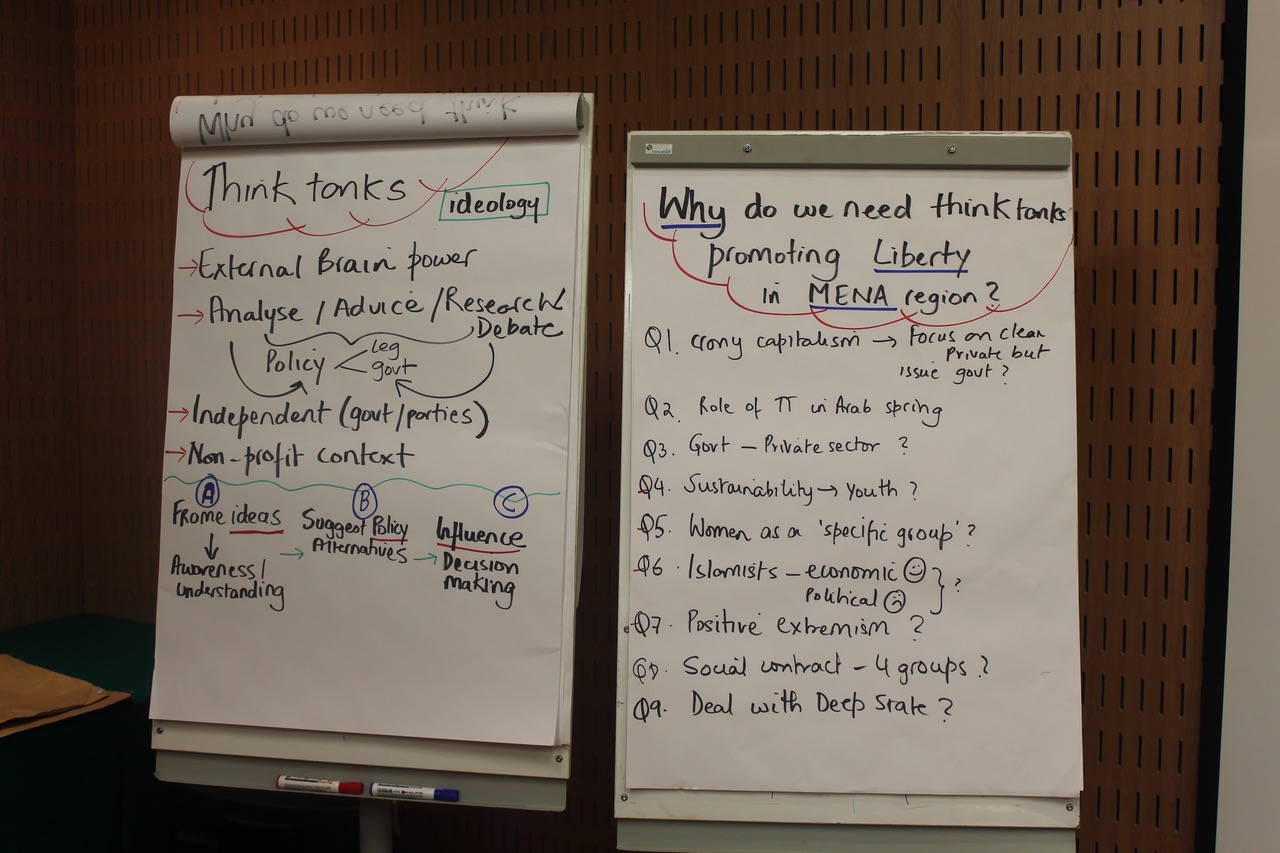 Why do we need think
Think tanks
ideology
→ External Brain power
→ Analyse / Advice / Research
Debate
Policy < leg
govt
→ Independent (govt/parties)
→ Non-profit context
A B C
Frome ideas
↓
Awareness/
understanding
→ Suggest Policy
Alternatives
→ Influence
Decision
making
Why do we need think tanks
promoting Liberty
in MENA region?
Q1. crony capitalism → Focus on clear
Private but
issue govt?
Q2 Role of TT in Arab spring
Q3. Govt – Private sector ?
Q4. Sustainability → Youth ?
Q5. Women as a 'specific group' ?
Q6. Islamists – economic ☺
Political ☹ } ?
Q7. Positive extremism ?
Q8. Social contract – 4 groups ?
Q9. Deal with Deep State ?